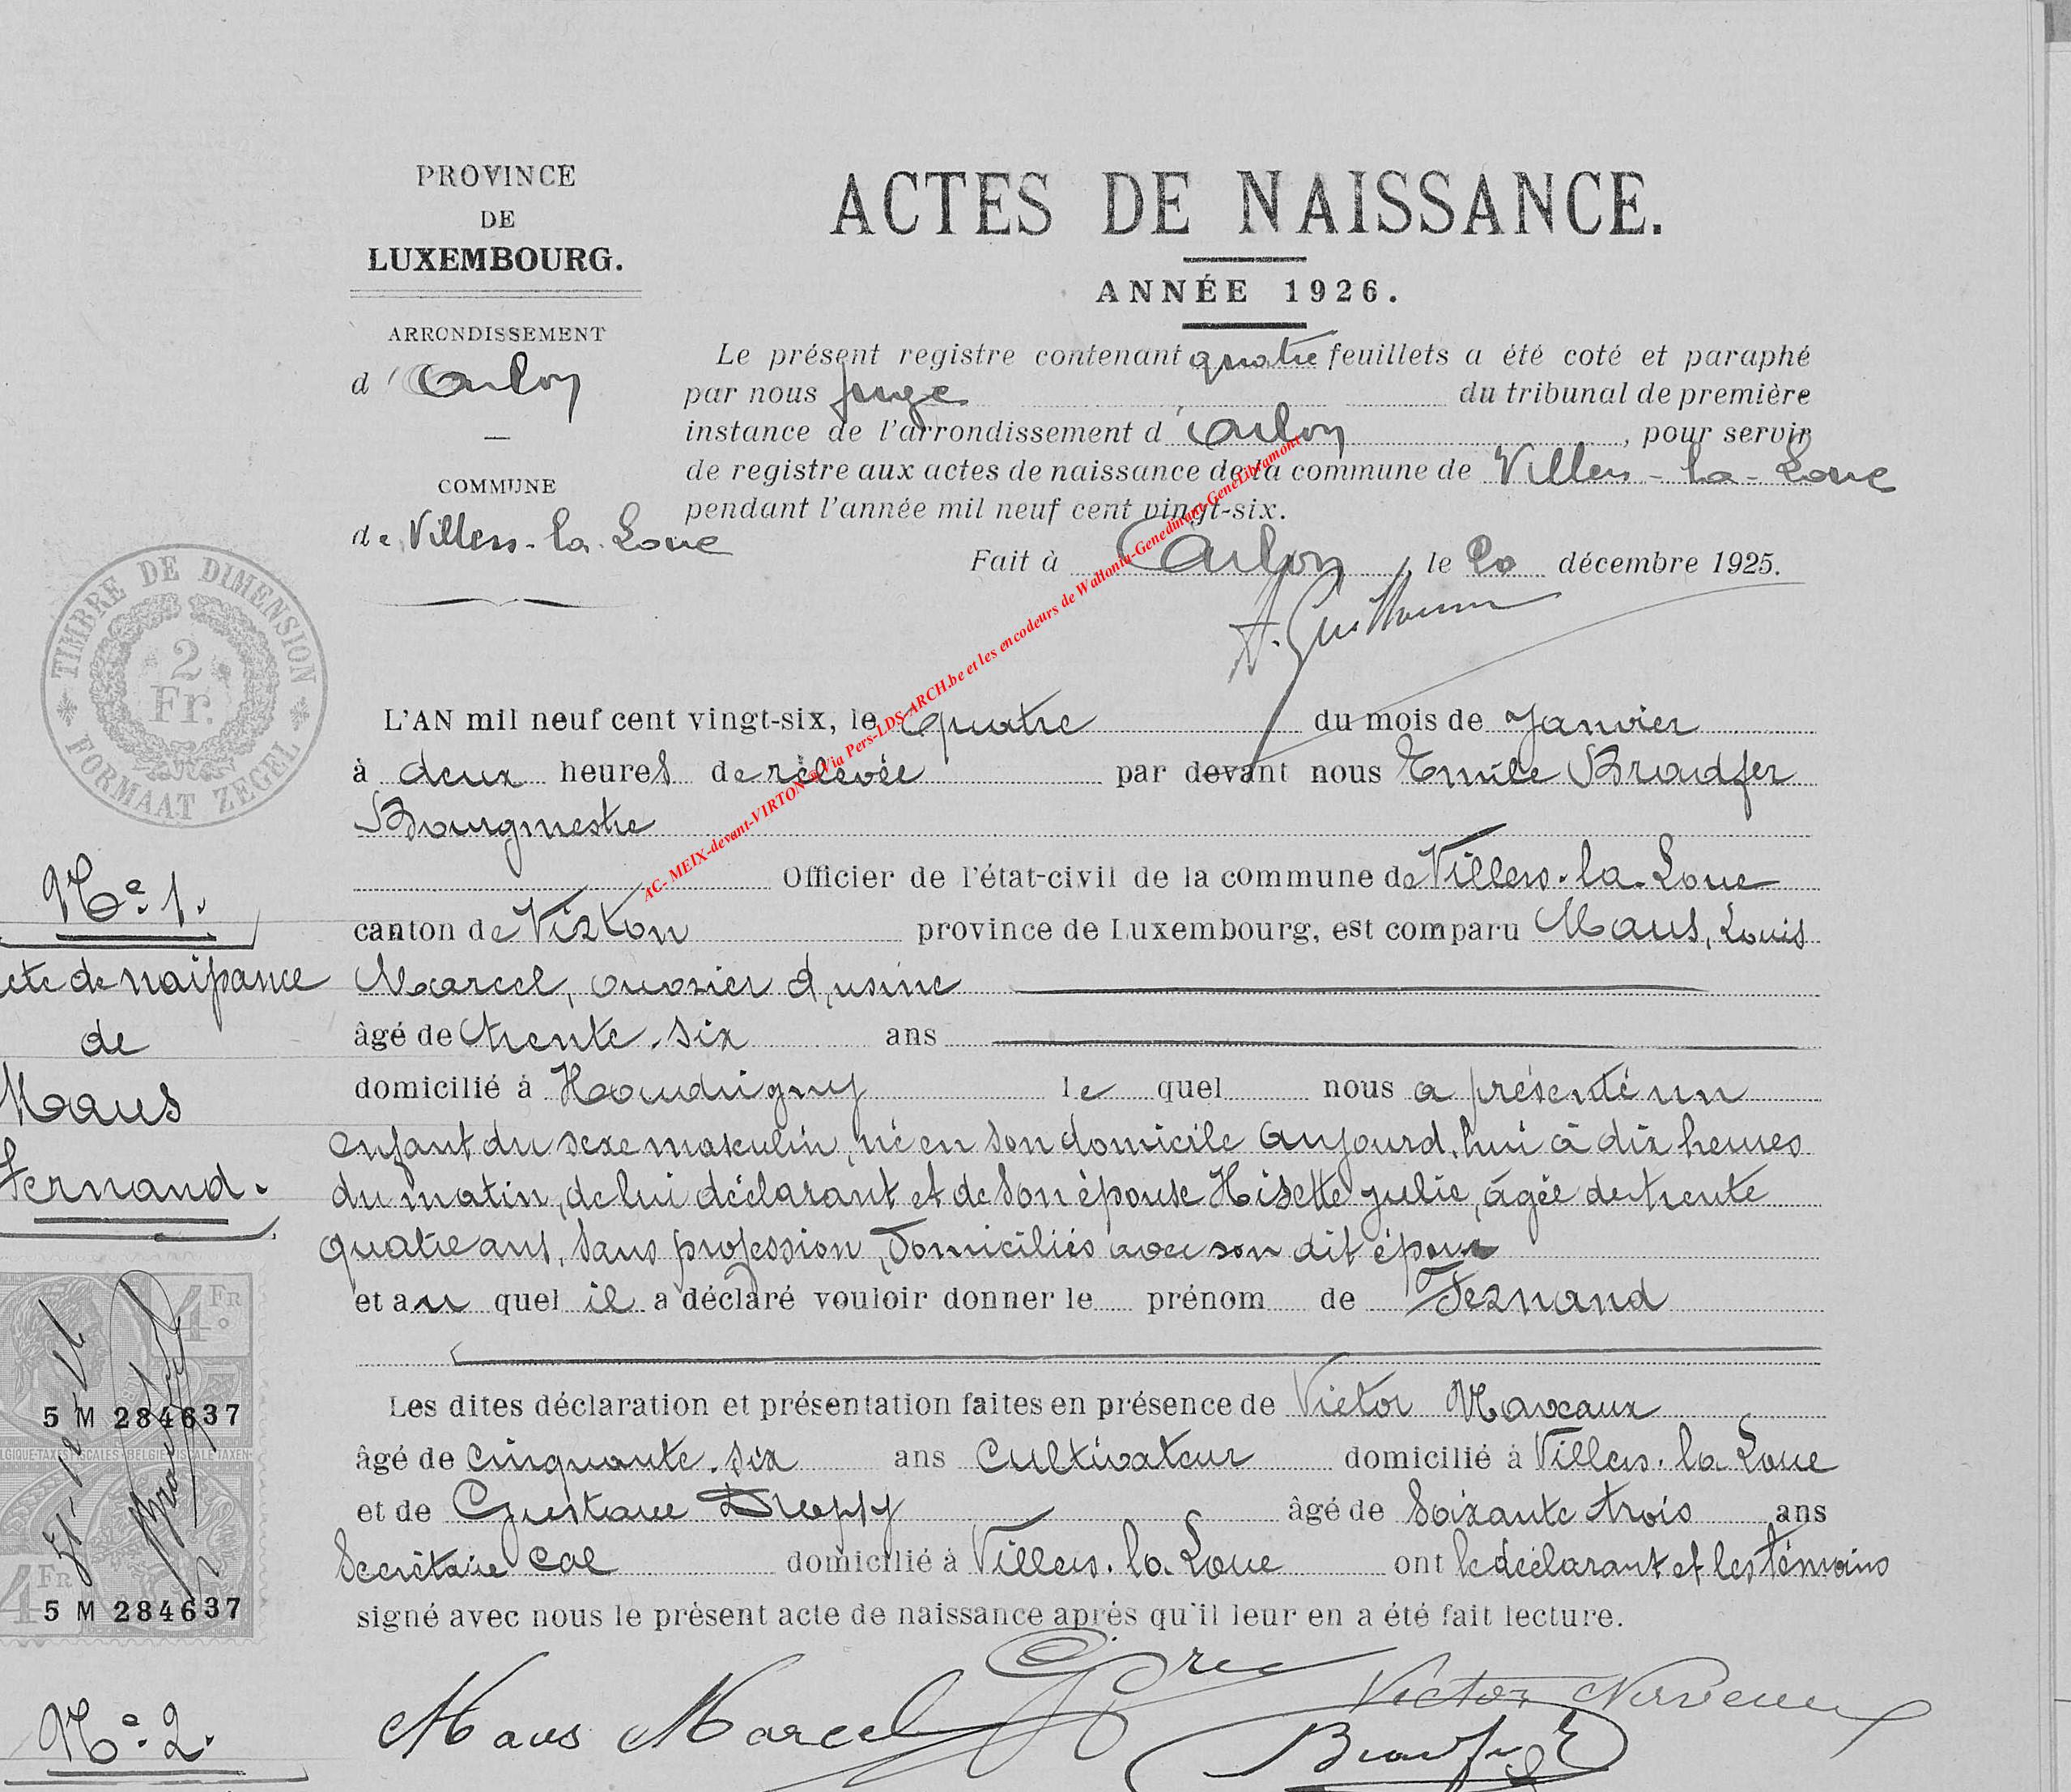 PROVINCE
DE
LUXEMBOURG.
ARRONDISSEMENT
d'Arlon
COMMUNE
de Villers-la-Loue
ACTES DE NAISSANCE.
ANNÉE 1926.
Le présent registre contenant quatre feuillets a été coté et paraphé
par nous juge du tribunal de première
instance de l'arrondissement d'Arlon, pour servir
de registre aux actes de naissance de la commune de Villers-la-Loue
pendant l'année mil neuf cent vingt-six.
Fait à Arlon, le 20 décembre 1925.
TIMBRE DE DIMENSION
2
Fr.
FORMAAT ZEGEL
AC- MEIX-devant-VIRTON @ Via Pers-LDS-ARCH.be et les encodeurs de Wallonia-Genedinant-GeneLibramont
L'AN mil neuf cent vingt-six, le quatre du mois de Janvier
à deux heures de rélevée par devant nous Emile Bradfer
Bourgmestre
Officier de l'état-civil de la commune de Villers-la-Loue
canton de Virton province de Luxembourg, est comparu Maus, Louis
Marcel, ouvrier d'usine
âgé de trente-six ans
domicilié à Houdrigny le quel nous a présenté un
enfant du sexe masculin, né en son domicile aujourd'hui à dix heures
du matin, de lui déclarant et de son épouse Hisette Julie, âgée de trente
quatre ans, sans profession, domiciliés avec son dit époux
et au quel il a déclaré vouloir donner le prénom de Fernand
Les dites déclaration et présentation faites en présence de Victor
âgé de cinquante-six ans cultivateur domicilié à Villers-la-Loue
et de Gustave âgé de soixante trois ans
Secrétaire cal domicilié à Villers-la-Loue ont le déclarant et les témoins
signé avec nous le présent acte de naissance après qu'il leur en a été fait lecture.
Maus Marcel
Victor
Bradfer E
N° 1.
cte de naissance
de
Maus
Fernand.
4 Fr
5 M 284637
BELGIQUE-TAXES FISCALES-BELGIE-FISCALE TAXEN
4 Fr
5 M 284637
N° 2.